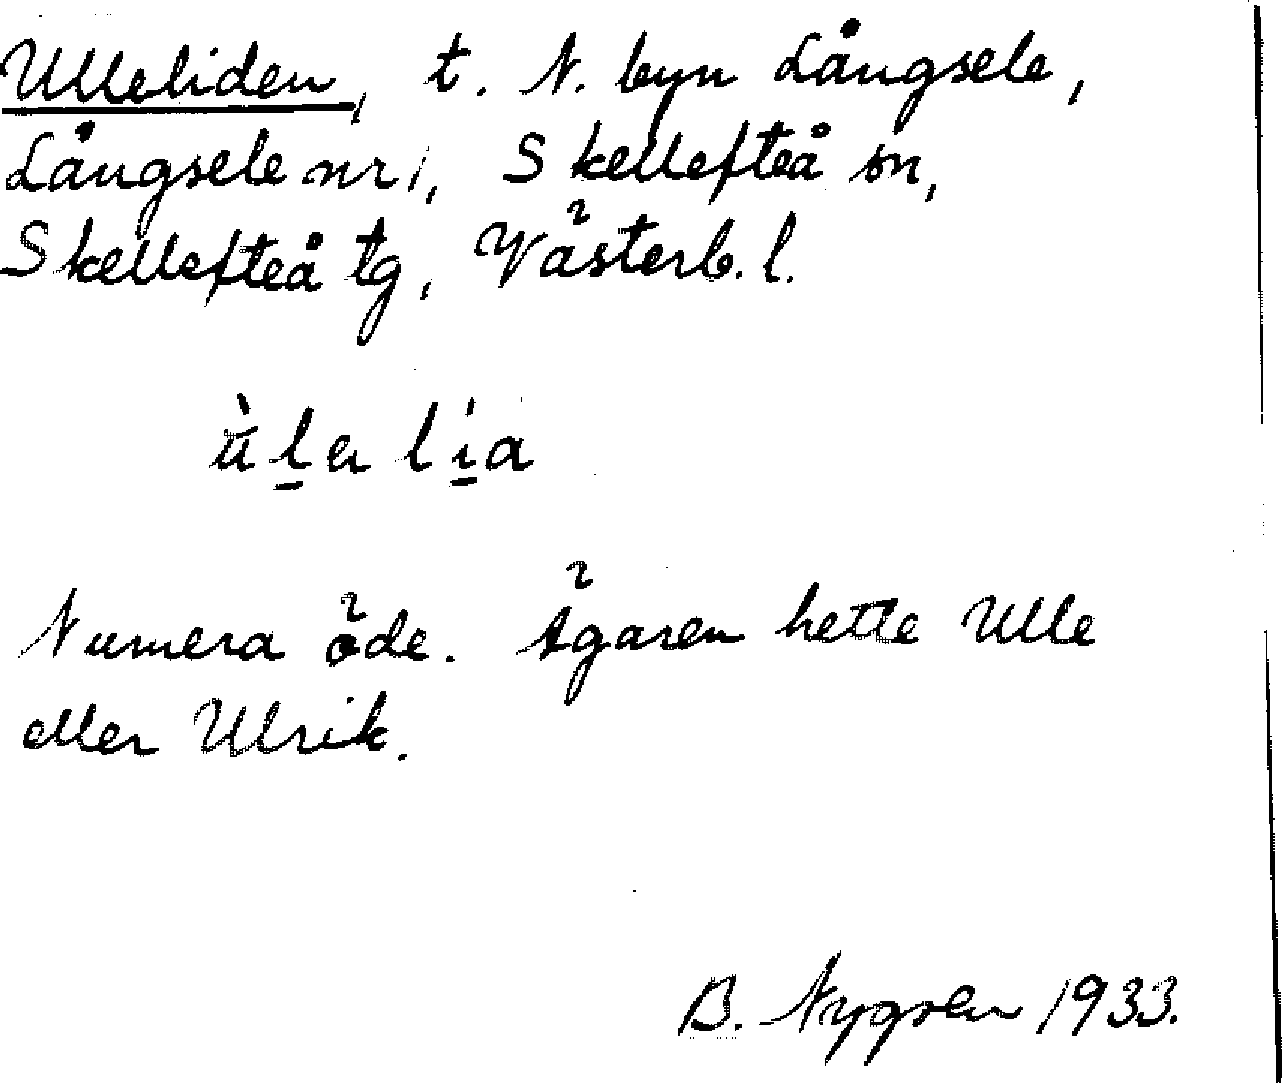 Ulleliden, t. N. byn Långsele,
Långsele nr 1, Skellefteå sn,
Skellefteå tg, Västerb. l.
Numera öde. Ägaren hette Ulle
eller Ulrik.
B. Nygren 1933.